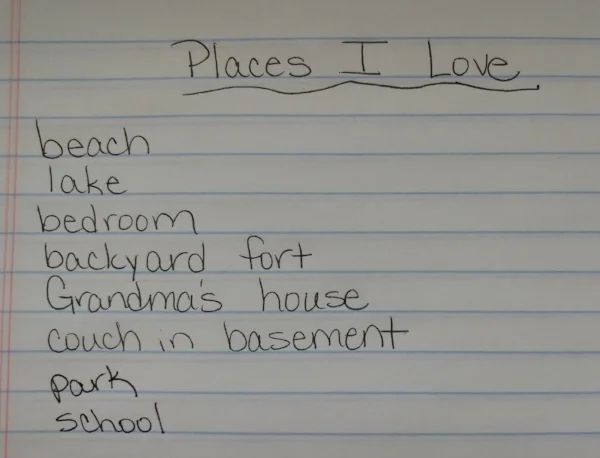 Places I Love
beach
lake
bedroom
backyard fort
Grandma's house
couch in basement
park
school